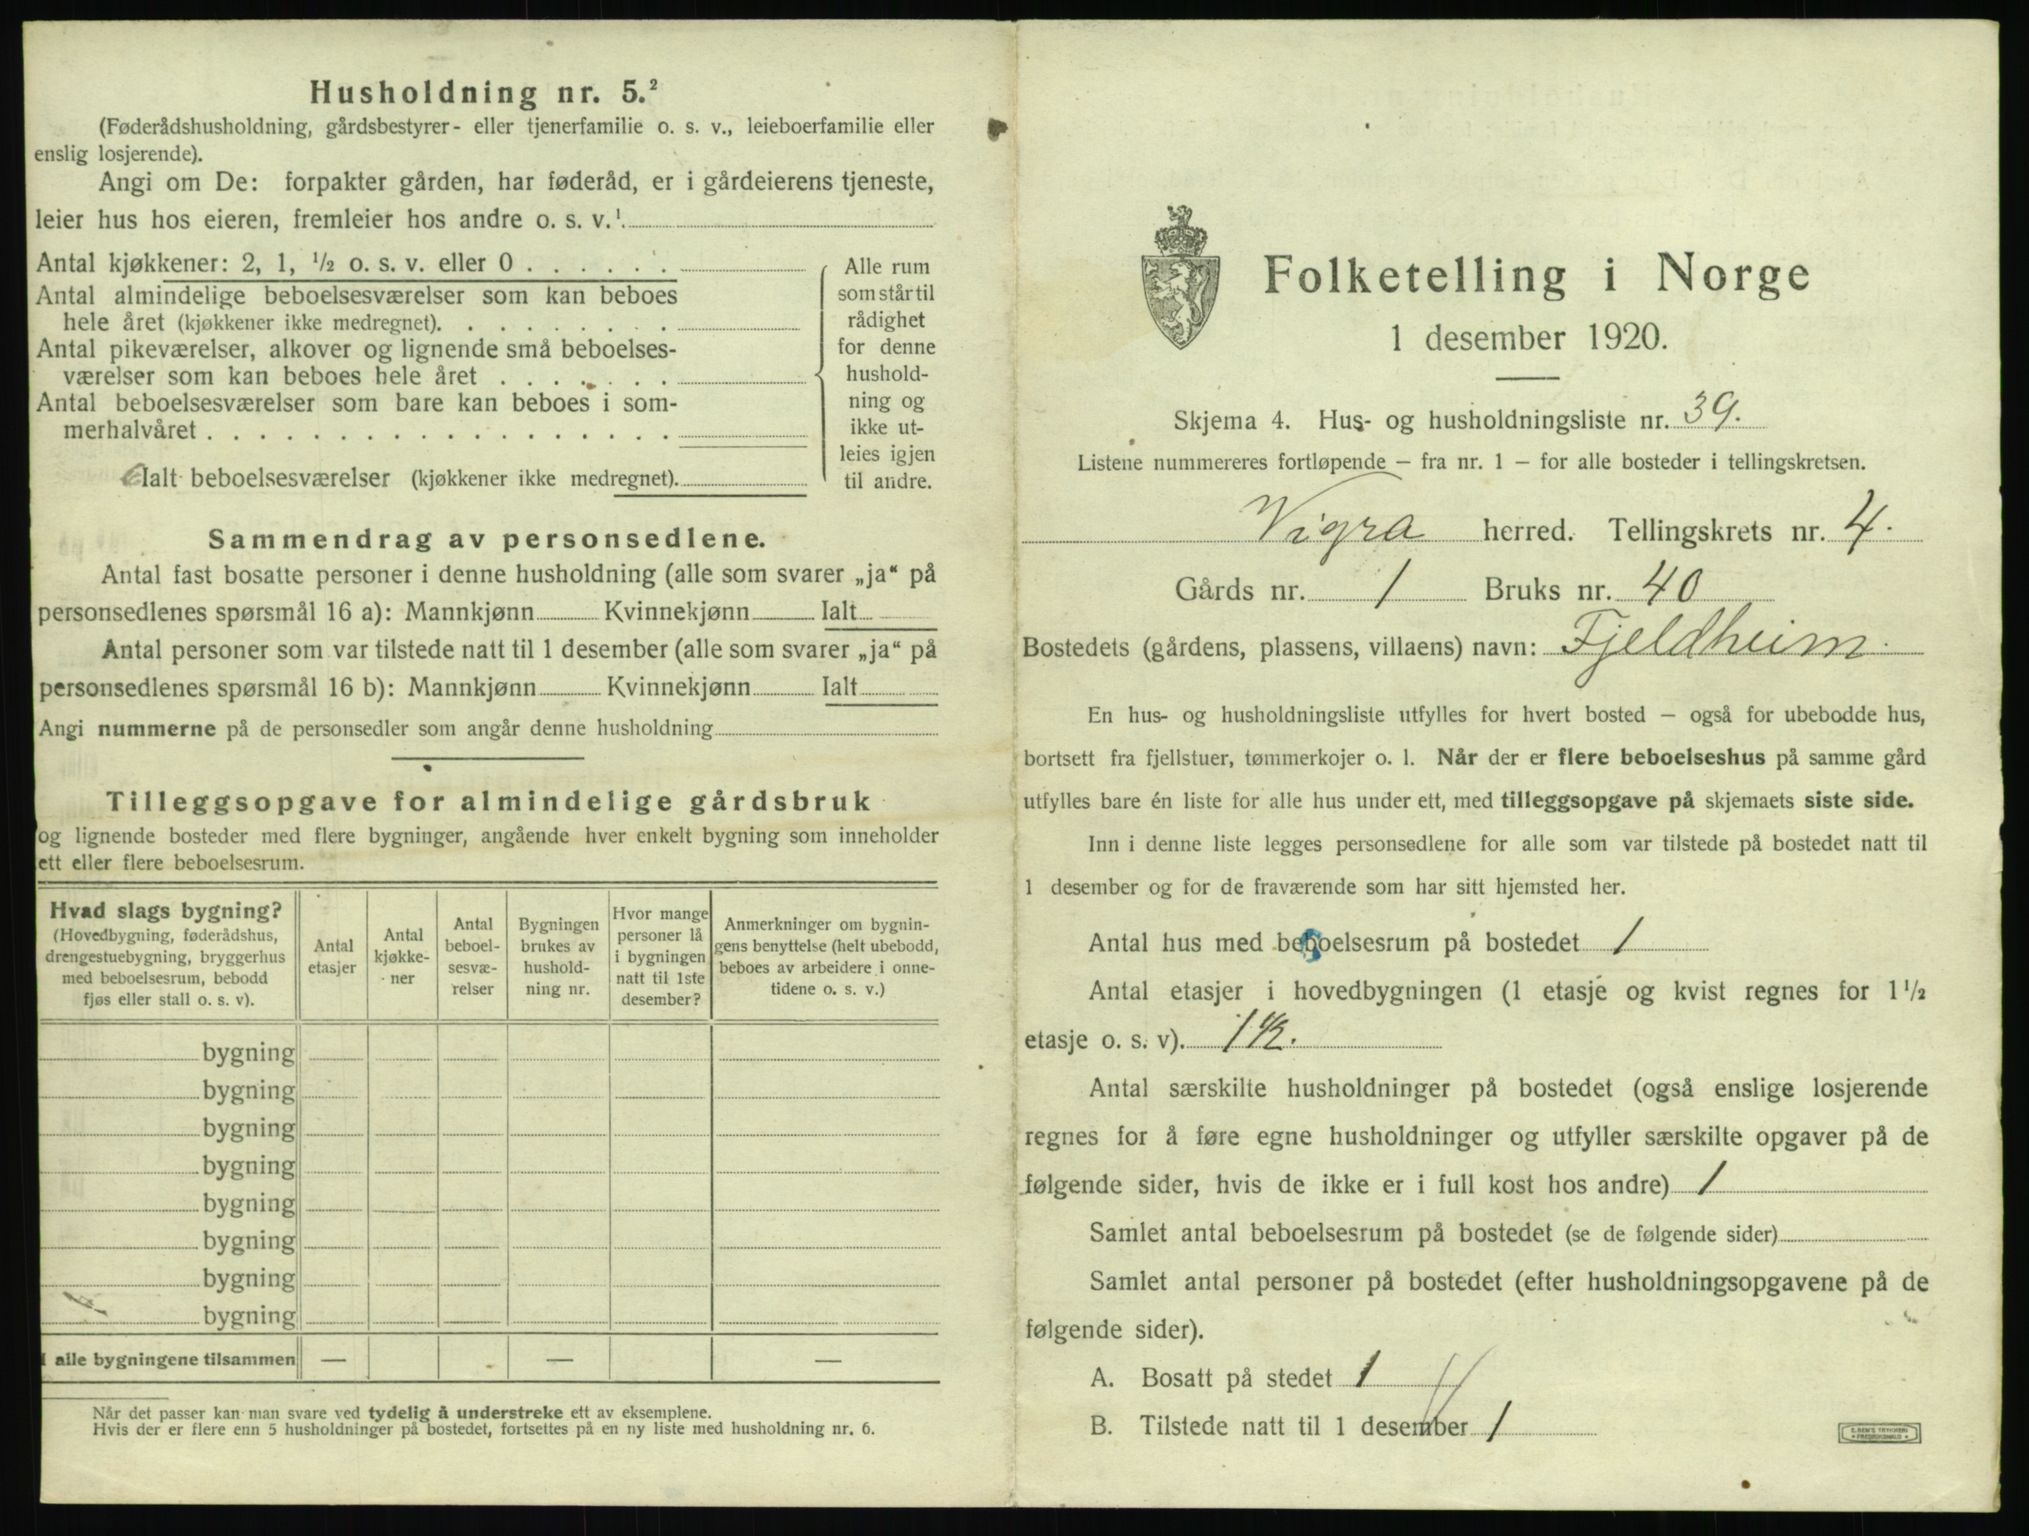 Husholdning nr. 5.²
(Føderådshusholdning, gårdsbestyrer- eller tjenerfamilie o. s. v., leieboerfamilie eller
enslig losjerende).
Angi om De: forpakter gården, har føderåd, er i gårdeierens tjeneste,
leier hus hos eieren, fremleier hos andre o. s. v.¹
Antal kjøkkener: 2, 1, ½ o. s. v. eller 0 . . . . . .
Antal almindelige beboelsesværelser som kan beboes
hele året (kjøkkener ikke medregnet). . . . . . . . .
Antal pikeværelser, alkover og lignende små beboelses-
værelser som kan beboes hele året . . . . . . .
Antal beboelsesværelser som bare kan beboes i som-
merhalvåret . . . . . . . . . . . . . . . . . .
Ialt beboelsesværelser (kjøkkener ikke medregnet).
Alle rum
som står til
rådighet
for denne
hushold-
ning og
ikke ut-
leies igjen
til andre.
Sammendrag av personsedlene.
Antal fast bosatte personer i denne husholdning (alle som svarer „ja“ på
personsedlenes spørsmål 16 a): Mannkjønn Kvinnekjønn Ialt
Antal personer som var tilstede natt til 1 desember (alle som svarer „ja“ på
personsedlenes spørsmål 16 b): Mannkjønn Kvinnekjønn Ialt
Angi nummerne på de personsedler som angår denne husholdning
Tilleggsopgave for almindelige gårdsbruk
og lignende bosteder med flere bygninger, angående hver enkelt bygning som inneholder
ett eller flere beboelsesrum.
Hvad slags bygning?
(Hovedbygning, føderådshus,
drengestuebygning, bryggerhus
med beboelsesrum, bebodd
fjøs eller stall o. s. v).
Antal
etasjer
Antal
kjøkke-
ner
Antal
beboel-
sesvæ-
relser
Bygningen
brukes av
hushold-
ning nr.
Hvor mange
personer lå
i bygningen
natt til 1ste
desember?
Anmerkninger om bygnin-
gens benyttelse (helt ubebodd,
beboes av arbeidere i onne-
tidene o. s. v.)
bygning
bygning
bygning
bygning
bygning
bygning
bygning
bygning
I alle bygningene tilsammen — — —
Når det passer kan man svare ved tydelig å understreke ett av eksemplene.
Hvis der er flere enn 5 husholdninger på bostedet, fortsettes på en ny liste med husholdning nr. 6.
Folketelling i Norge
1 desember 1920.
Skjema 4. Hus- og husholdningsliste nr. 39.
Listene nummereres fortløpende — fra nr. 1 — for alle bosteder i tellingskretsen.
Vigra herred. Tellingskrets nr. 4.
Gårds nr. 1 Bruks nr. 40
Bostedets (gårdens, plassens, villaens) navn: Fjeldheim.
En hus- og husholdningsliste utfylles for hvert bosted — også for ubebodde hus,
bortsett fra fjellstuer, tømmerkojer o. l. Når der er flere beboelseshus på samme gård
utfylles bare én liste for alle hus under ett, med tilleggsopgave på skjemaets siste side.
Inn i denne liste legges personsedlene for alle som var tilstede på bostedet natt til
1 desember og for de fraværende som har sitt hjemsted her.
Antal hus med beboelsesrum på bostedet 1
Antal etasjer i hovedbygningen (1 etasje og kvist regnes for 1½
etasje o. s. v). 1½.
Antal særskilte husholdninger på bostedet (også enslige losjerende
regnes for å føre egne husholdninger og utfyller særskilte opgaver på de
følgende sider, hvis de ikke er i full kost hos andre) 1
Samlet antal beboelsesrum på bostedet (se de følgende sider)
Samlet antal personer på bostedet (efter husholdningsopgavene på de
følgende sider).
A. Bosatt på stedet 1
B. Tilstede natt til 1 desember 1